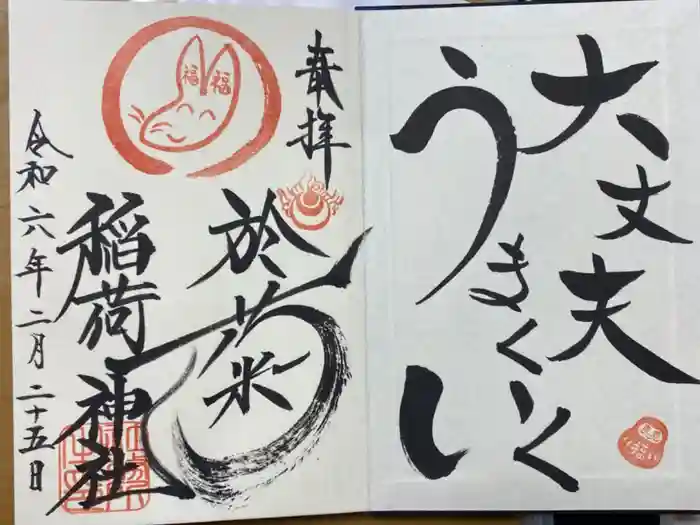 大丈夫
うまくいく
し
福
奉拝
福 福
於菊
稲荷神社
令和六年二月二十五日